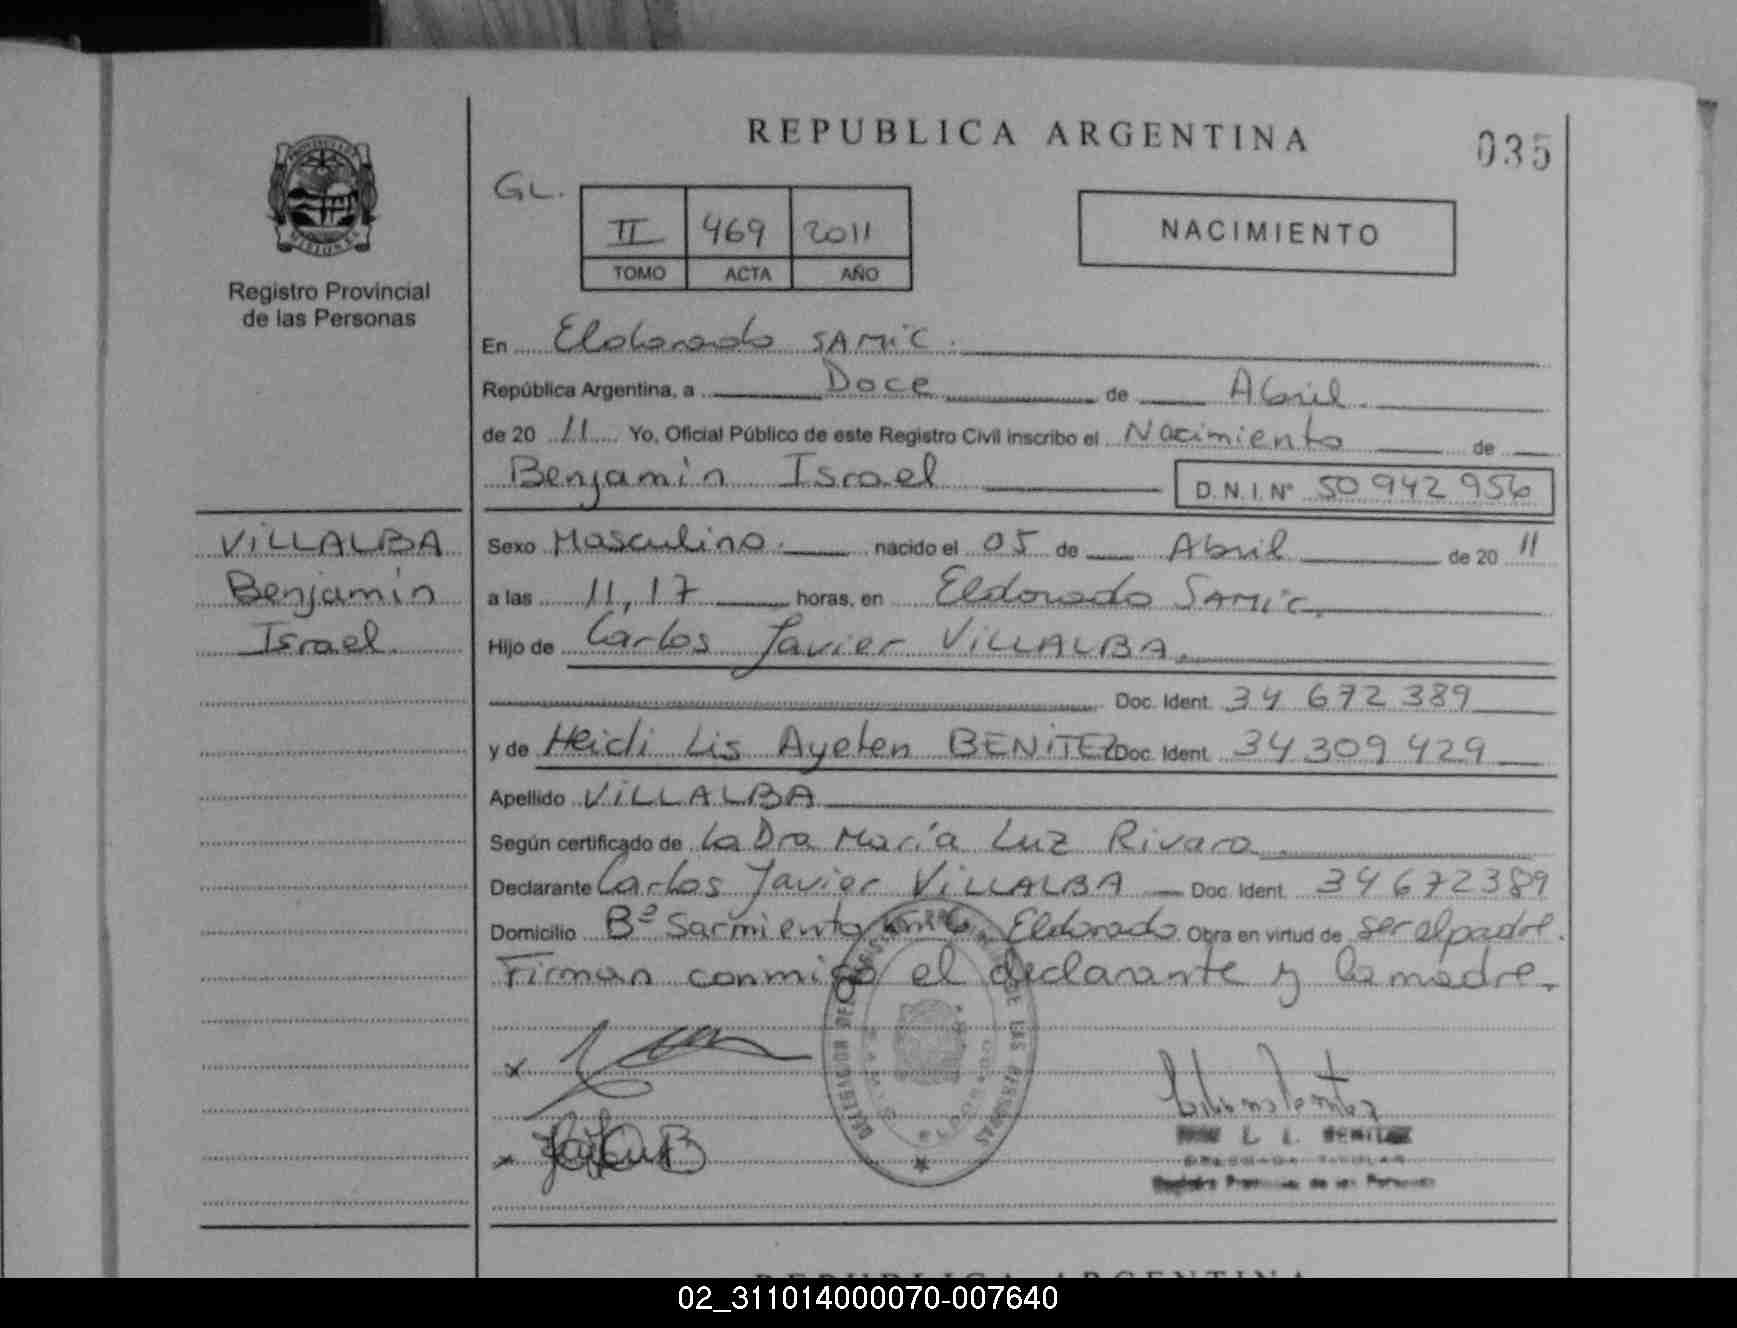 REPUBLICA ARGENTINA
035
GL.
II 469 2011
TOMO ACTA AÑO
NACIMIENTO
PROVINCIA DE
MISIONES
Registro Provincial
de las Personas
En Eldorado SAMiC.
República Argentina, a Doce de Abril.
de 20 11 Yo, Oficial Público de este Registro Civil inscribo el Nacimiento de
Benjamin Israel D.N.I. Nº 50 942 956
VILLALBA
Benjamin
Israel.
Sexo Masculino. nacido el 05 de Abril de 20 11
a las 11,17 horas, en Eldorado SAMiC.
Hijo de Carlos Javier VILLALBA.
Doc. Ident. 34 672 389
y de Heidi Lis Ayelen BENITEZ Doc. Ident. 34 309 429
Apellido VILLALBA
Según certificado de la Dra María Luz Rivaro
Declarante Carlos Javier VILLALBA Doc. Ident. 34672389
Domicilio Bº Sarmiento Eldorado Obra en virtud de ser el padre.
Firman conmigo el declarante y la madre.
DELEGACION DE LAS PERSONAS
L. I. BENITEZ
Registro Provincial de las Personas
REPUBLICA ARGENTINA
02_311014000070-007640